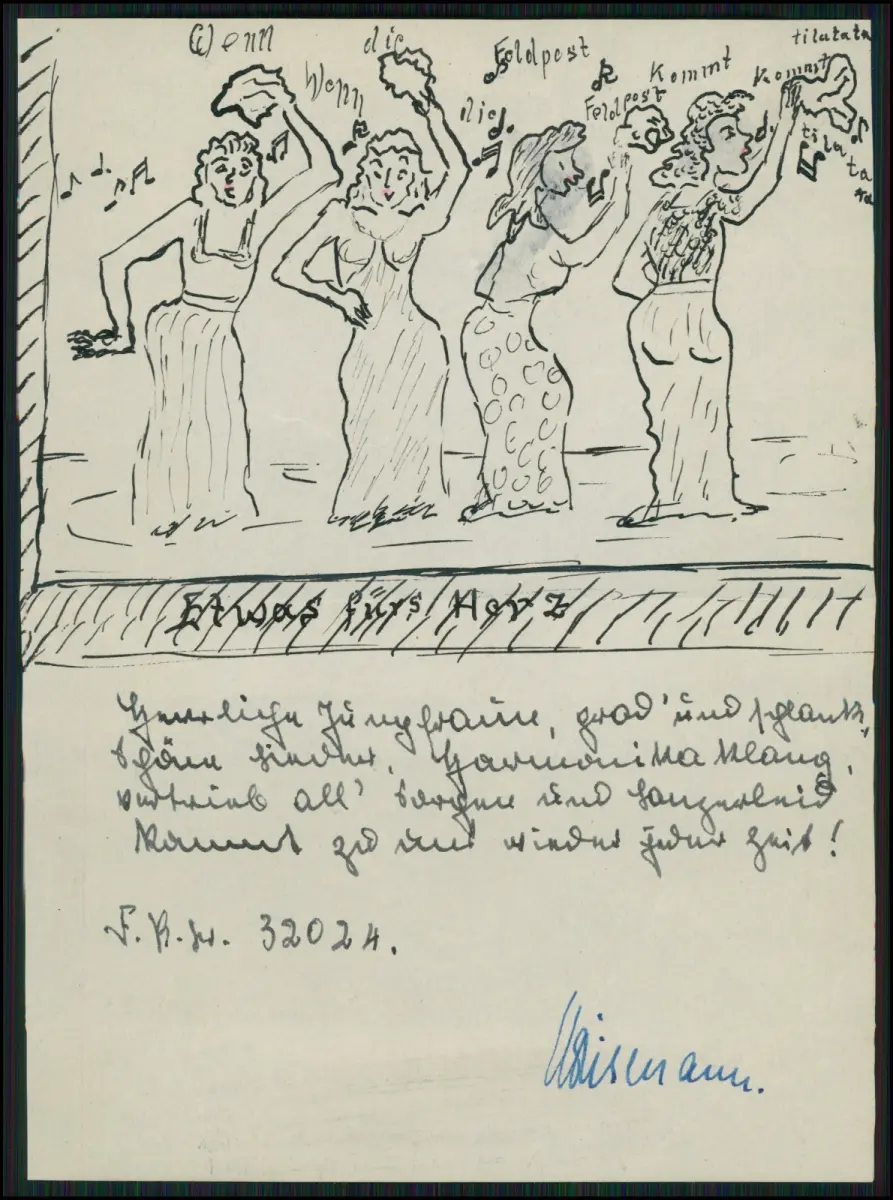 Wenn die Feldpost kommt tilatata
Wenn die Feldpost kommt tilatata
Etwas fürs Herz
Herrliche Jungfraun, grad' und schlank,
Schöne Lieder, Harmonika Klang,
vertrieb all' Sorgen und
Kommt zu uns wieder jeder Zeit!
32024.